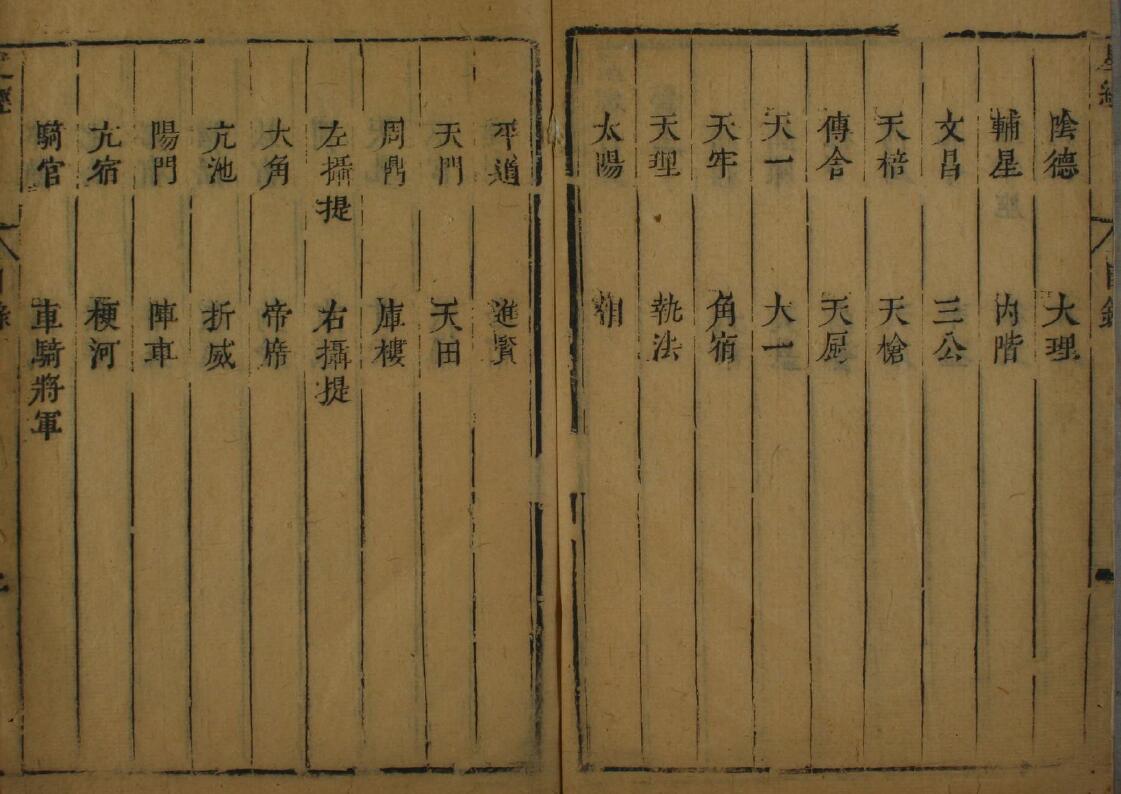 星經 目錄
陰德 大理
輔星 內階
文昌 三公
天棓 天槍
傳舍 天厨
天一 大一
天牢 角宿
天理 執法
太陽 相
平道 進賢
天門 天田
周鼎 庫樓
左攝提 右攝提
大角 帝席
亢池 折威
陽門 陣車
亢宿 梗河
騎官 車騎將軍